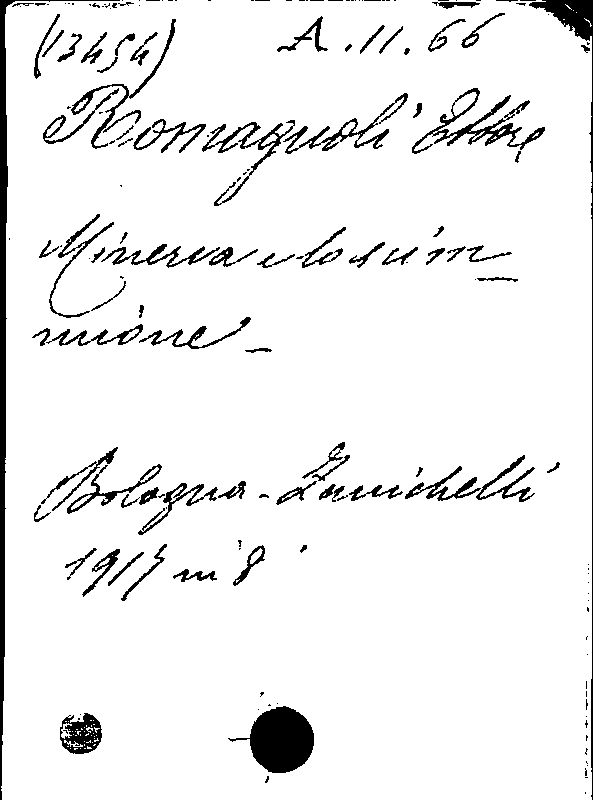 (13454) A.11.66
Romagnoli Ettore
Minerva e lo scim-
mione -
Bologna - Zanichelli
1917 in 8°